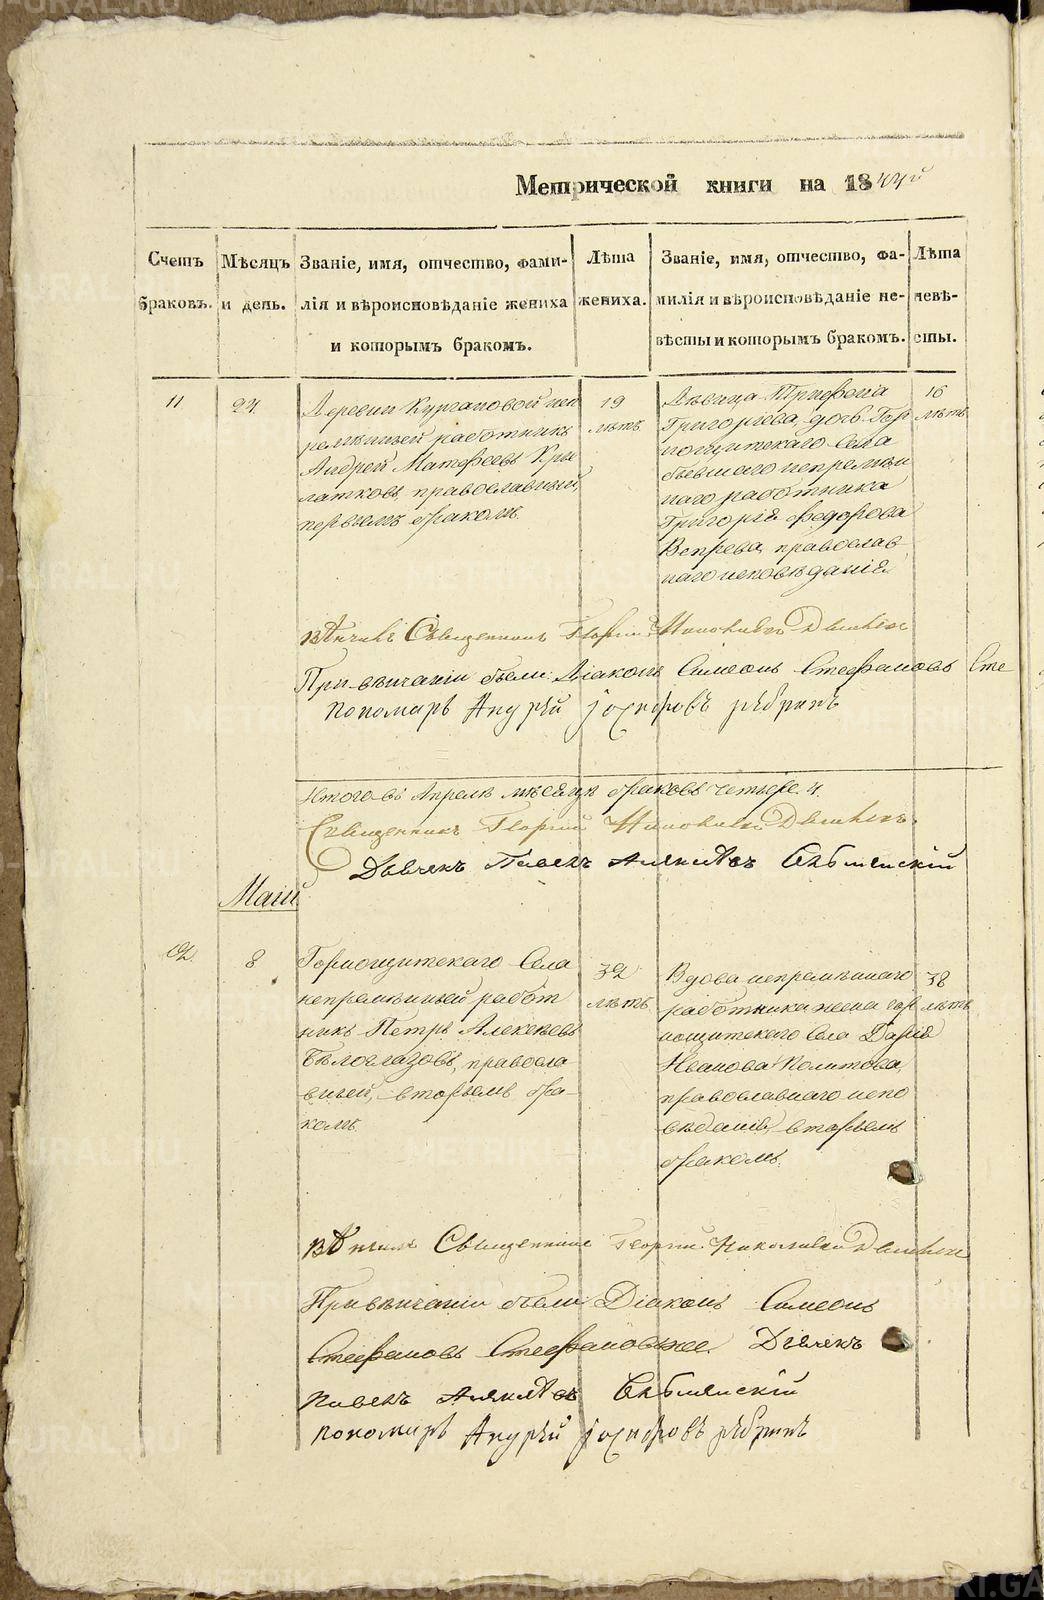 Метрической книги на 1844й
Счетъ браковъ.
Мѣсяцъ и день.
Званіе, имя, отчество, фами-
лія и вѣроисповѣданіе жениха
и которымъ бракомъ.
Лѣта жениха.
Званіе, имя, отчество, фа-
милія и вѣроисповѣданіе не-
вѣсты и которымъ бракомъ.
Лѣта невѣ-
сты.
11
24.
Деревни Кургановой неп
ремѣнный работникъ
Андрей Матфеевъ Кры
латковъ, православный,
первымъ бракомъ.
19
лѣтъ
Дѣвица Трифена
Григоріева, дочь Гор
нощитскаго Села
бывшаго непремѣн
наго работника
Григорія Федорова
Вепрева, православ
наго исповѣданія
16
лѣтъ
Вѣнчалъ Священникъ Георгій
При вѣнчаніи были: Діаконъ Симеонъ Стефановъ Сте
пономарь Андрей Іосифовъ
Итого въ Апрелѣ мѣсяцѣ браковъ четыре. 4.
Священникъ Георгій
Дьячекъ Павелъ
Маій
12.
8
Горнощитскаго Села
непремѣнный работ
никъ Петръ Алексѣевъ
Бѣлоглазовъ, правосла
вный, вторымъ бра-
комъ.
32
лѣтъ
Вдова непремѣннаго
работника жена гор
нощитскаго Села Дарія
Иванова Политова,
православнаго испо
вѣданія, вторымъ
бракомъ.
38
лѣтъ
Вѣнчалъ Священникъ Георгій
При вѣнчаніи были: Діаконъ Симеонъ
Стефановъ Дьячекъ
Павелъ
пономарь Андрей Іосифовъ
METRIKI.GASO-URAL.RU